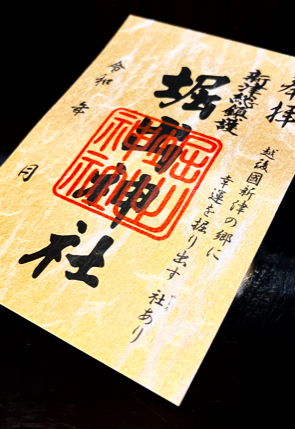 奉拝
越後國新津の郷に
幸運を掘り出す 社あり
新津総鎮護
堀出神社
堀出
神社
令和 年 月